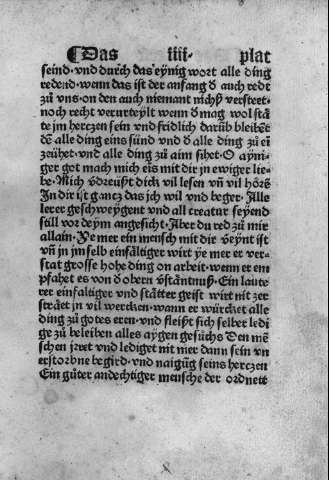 ¶Das iiij· plat
seind·vnd durch das eynig wort alle ding
redend·wenn das ist der anfang d̕ auch redt
zů vns·on den auch niemant nichß versteet·
noch recht verurteylt wenn d̕ mag wol stā
te jm herczen sein vnd fridlich darüb bleibēt
dē alle ding eins sünd vnd d̕ alle ding zů eī
zeühet·vnd alle ding zů aim sihet·O ayni-
ger got mach mich eis mit dir jn ewiger lie-
be·Mich v̕dreüßt dich vil lesen vnd vil hörē
In dir ist gancz das jch wil vnd beger·Alle
lerer geschweygent vnd all creatur seyend
still vor deym angesicht·Aber du red zů mir
allain·Ye mer ein mensch mit dir v̕eynt ist
vn̄ jn jm selb einfåltiger wirt ye mer er ver-
stat grosse hohe ding on arbeit·wenn er em
pfahet es von d̕ obern v̕stāntnuß·Ein laute
rer einfaltiger vnd stätter geist wirt nit zer
sträet jn vil wercken·wann er würcket alle
ding zů gotes eren·vnd fleißt sich selber ledi
ge zů beleiben alles aygen gesüchs Den mē
schen jrret vnd lediget nit mer dann sein vn
erstorbne begird·vnd naigūg seins herczen
Ein gůter andechtiger mensche der ordnett